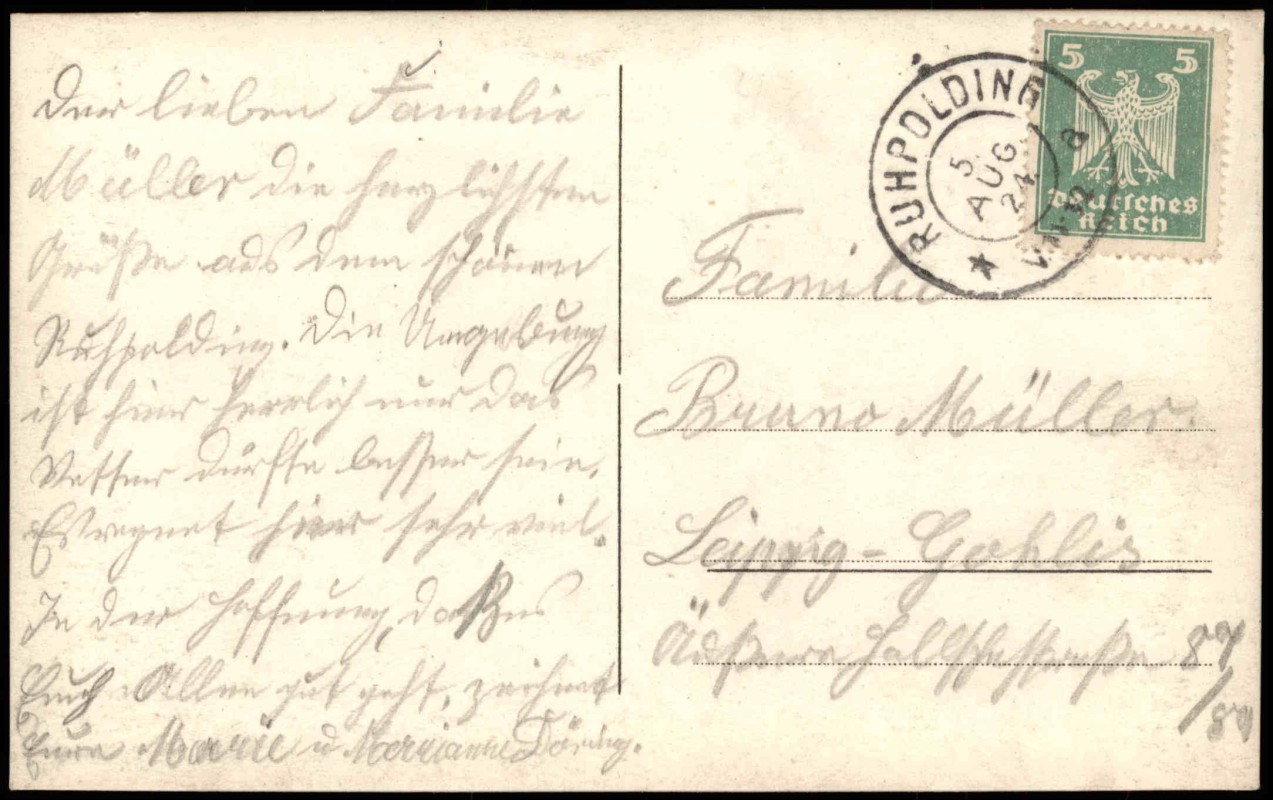 Der lieben Familie
Müller die herzlichsten
Grüße aus dem schönen
Ruhpolding. Die Umgebung
ist hier herrlich nur das
Wetter dürfte besser sein.
Es regnet hier sehr viel.
In der Hoffnung, daß es
Euch Allen gut geht, zeichnet
Eure Marie u Marianne Döring.
RUHPOLDING
5.
AUG.
24
a
5 5
Deutsches
Reich
Familie
Bruno Müller.
Leipzig-Gohlis
Äußere Hallschestraße 87